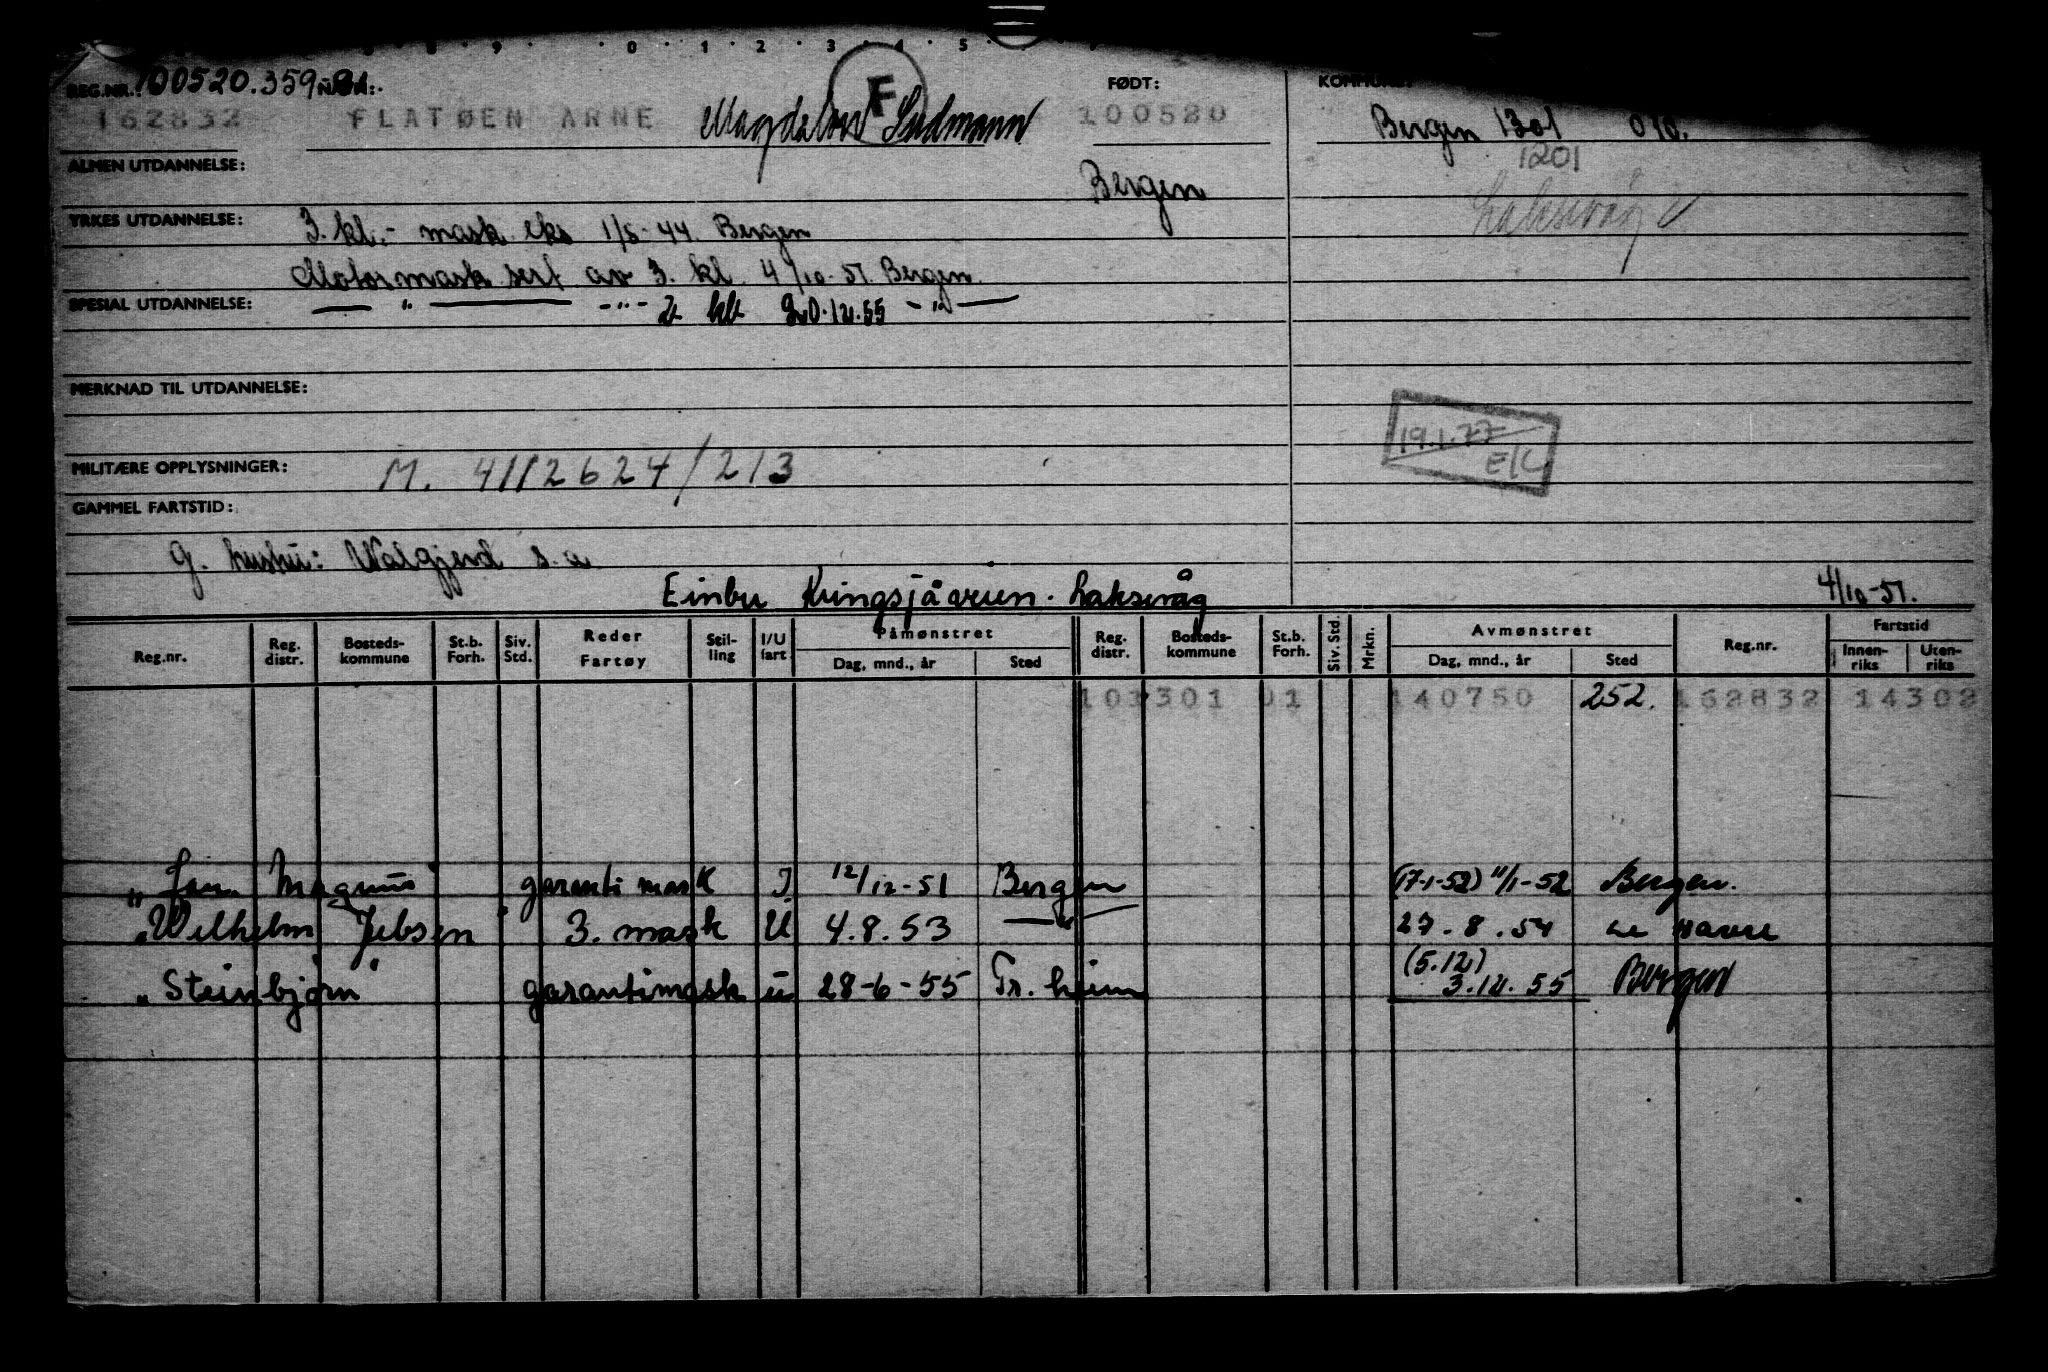 8 . 9 . . 0 . 1 . 2 . 3 . 4 . 5
REG.NR.: 100520.359 NAVN: FØDT: KOMMUNE:
162832 FLATØEN ARNE Magdalon Ludmann F 100520 Bergen 1301 010.
1201
ALMEN UTDANNELSE: Bergen Laksevåg
YRKES UTDANNELSE: 3. kl.- mask eks 1/6-44. Bergen
Motormask sert av 3. kl. 4/10-51. Bergen.
SPESIAL UTDANNELSE: — " — - " - 2 kl 20.12.55 - " —
MERKNAD TIL UTDANNELSE:
19.1.77
E/L
MILITÆRE OPPLYSNINGER: M. 4112624/213
GAMMEL FARTSTID:
g. hustru: Valgjerd s.a
Einbu Kringsjåveien. Laksevåg 4/10-51.
Reg.nr. Reg. distr. Bosteds-kommune St.b. Forh. Siv. Std. Reder Fartøy Stil-ling I/U fart Påmønstret Dag, mnd., år Sted Reg. distr. Bosteds-kommune St.b. Forh. Siv. Std. Mrkn. Avmønstret Dag, mnd., år Sted Reg.nr. Fartstid Innen-riks Uten-riks
101301 01 140750 252. 162832 14302
" Magnus garanti mask I 12/12-51 Bergen (17-1-52) 11/1-52 Bergen.
" Wilhelm Jebsen 3. mask U 4.8.53 — " — 27.8.54 Le Havre
" Steinbjørn " garantimask u 28-6-55 Tr. heim (5.12) 3.12.55 Bergen